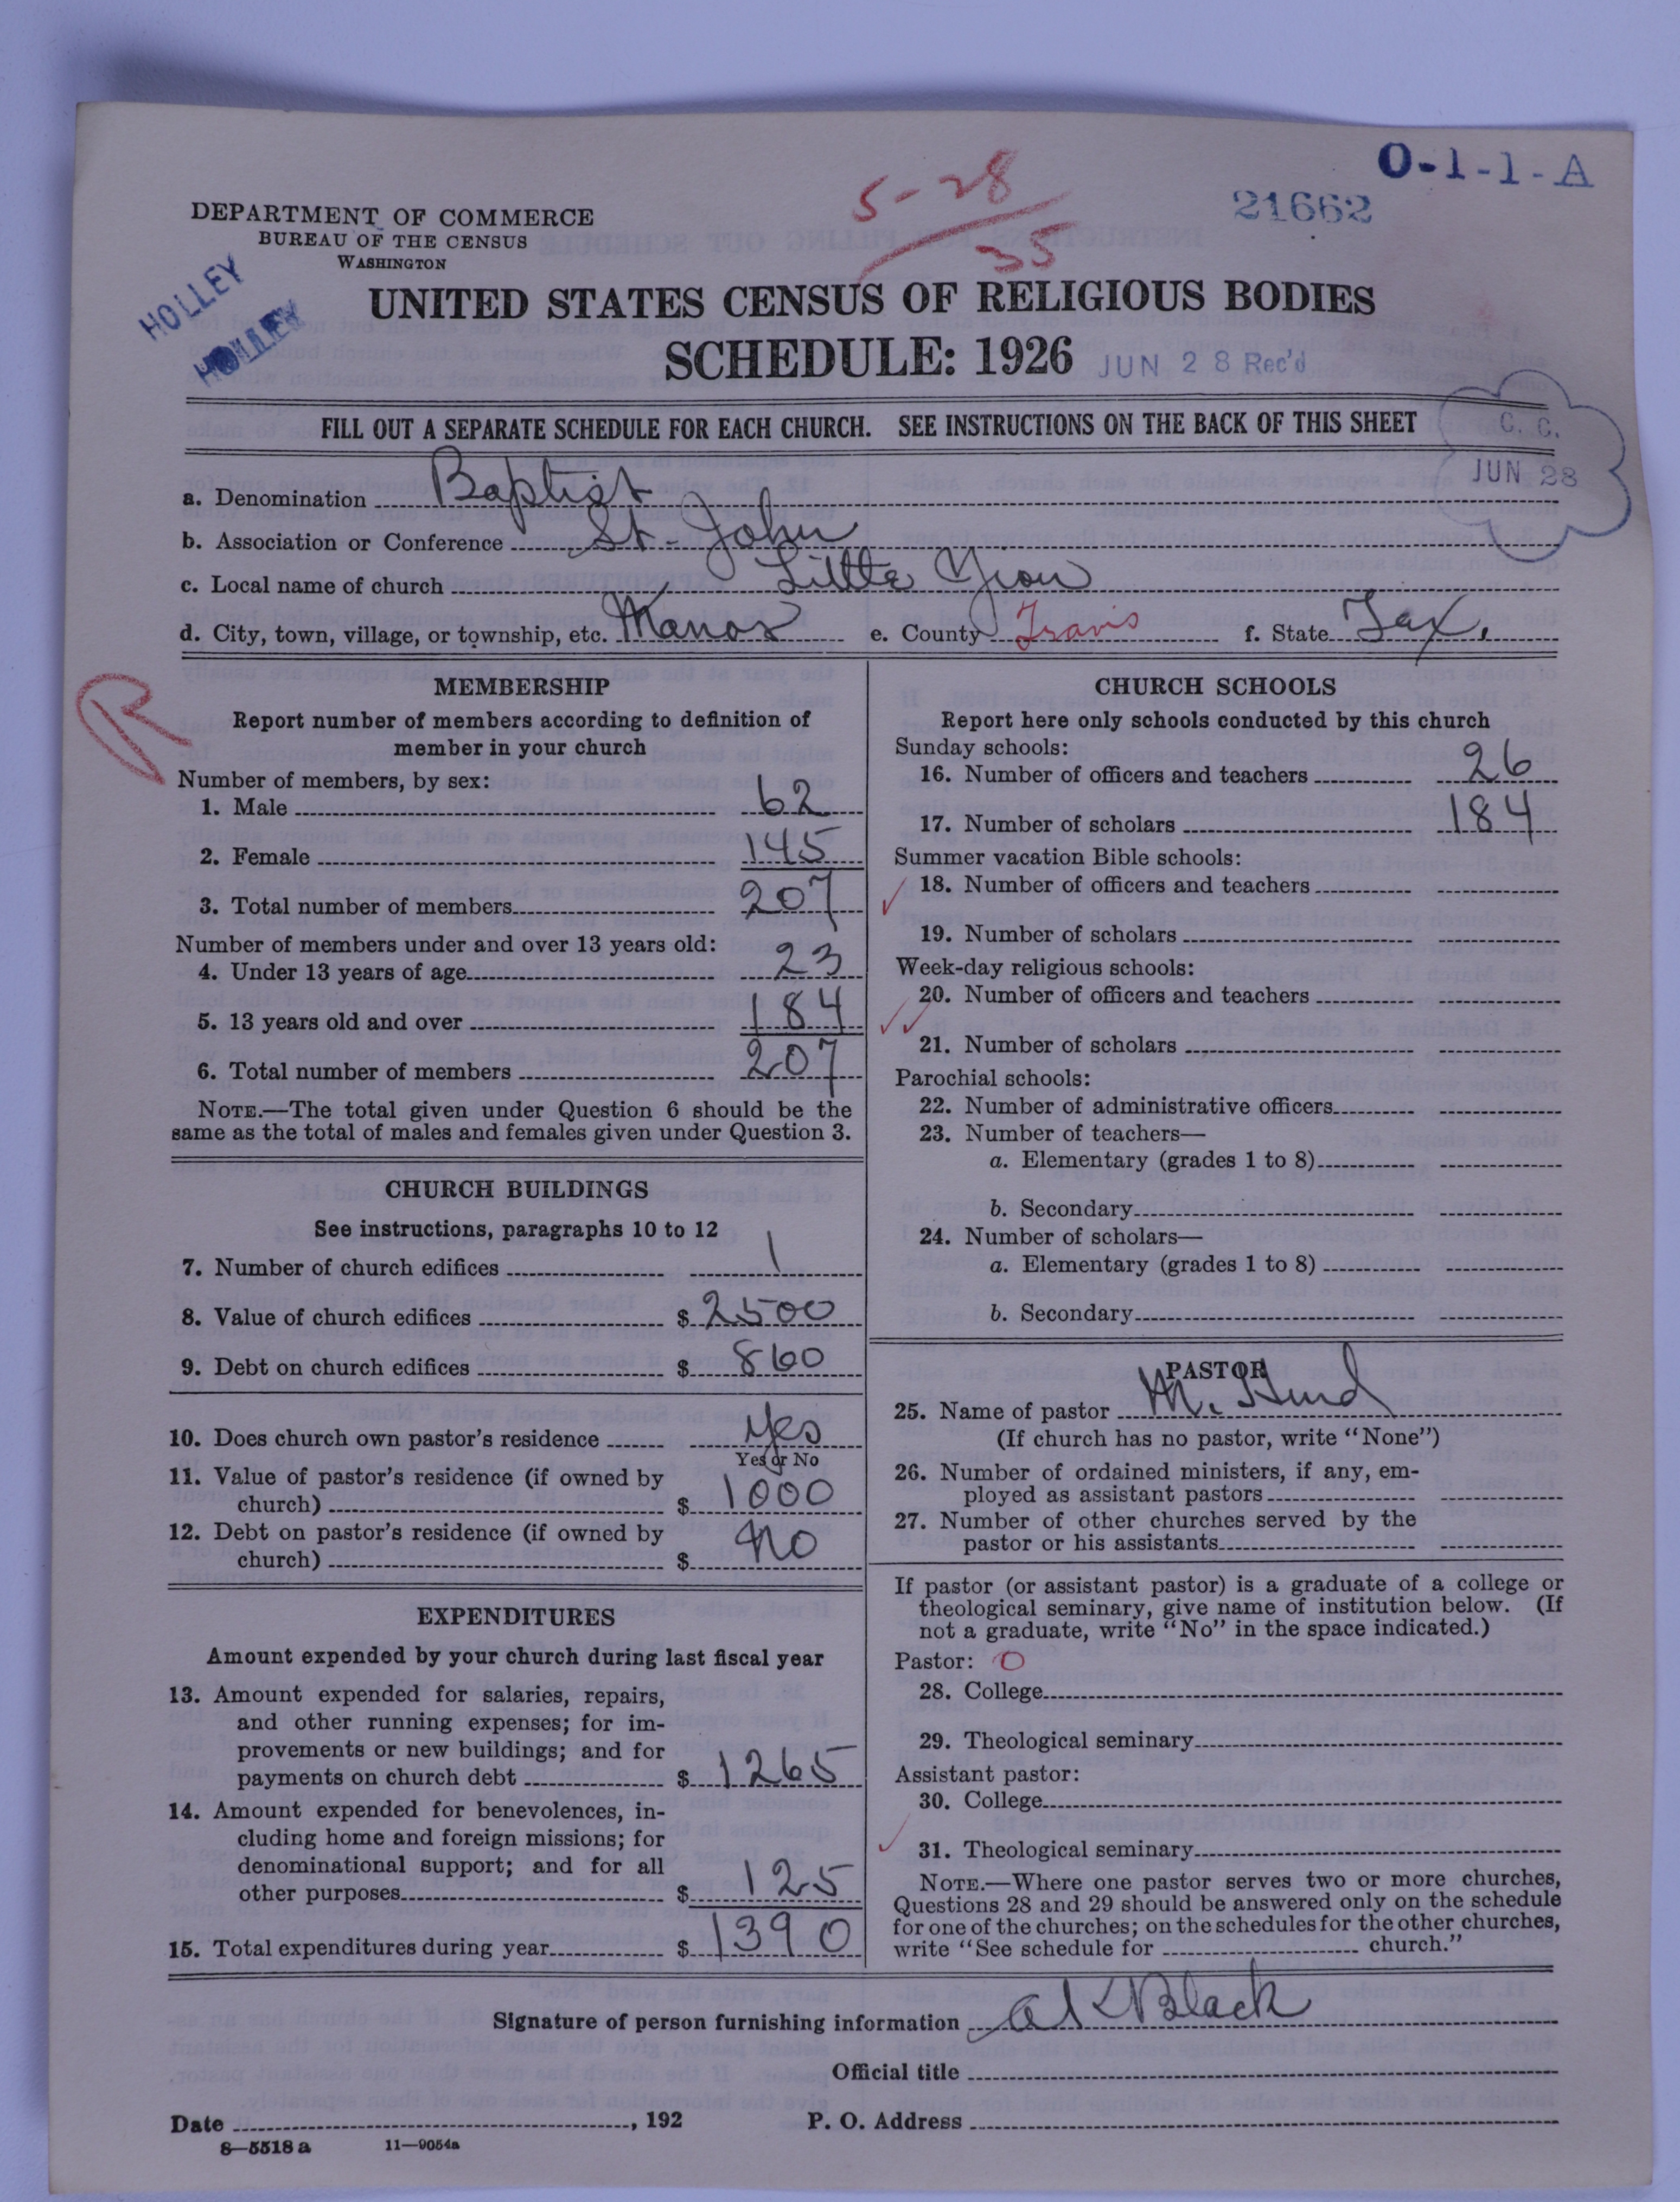 O-1-1-A
5-28
35
21662
DEPARTMENT OF COMMERCE
BUREAU OF THE CENSUS
WASHINGTON
HOLLEY
HOLLEY
UNITED STATES CENSUS OF RELIGIOUS BODIES
SCHEDULE: 1926 JUN 28 Rec'd
FILL OUT A SEPARATE SCHEDULE FOR EACH CHURCH. SEE INSTRUCTIONS ON THE BACK OF THIS SHEET
C. C.
JUN 28
a. Denomination Baptist
b. Association or Conference St. John
c. Local name of church Little Zion
d. City, town, village, or township, etc. Manor e. County Travis f. State Tex.
R
MEMBERSHIP
Report number of members according to definition of
member in your church
Number of members, by sex:
1. Male 62
2. Female 145
3. Total number of members 207
Number of members under and over 13 years old:
4. Under 13 years of age 23
5. 13 years old and over 184
6. Total number of members 207
NOTE.—The total given under Question 6 should be the
same as the total of males and females given under Question 3.
CHURCH BUILDINGS
See instructions, paragraphs 10 to 12
7. Number of church edifices 1
8. Value of church edifices $ 2500
9. Debt on church edifices $ 860
10. Does church own pastor's residence Yes
Yes or No
11. Value of pastor's residence (if owned by
church) $ 1000
12. Debt on pastor's residence (if owned by
church) $ No
EXPENDITURES
Amount expended by your church during last fiscal year
13. Amount expended for salaries, repairs,
and other running expenses; for im-
provements or new buildings; and for
payments on church debt $ 1265
14. Amount expended for benevolences, in-
cluding home and foreign missions; for
denominational support; and for all
other purposes $ 125
15. Total expenditures during year $ 1390
CHURCH SCHOOLS
Report here only schools conducted by this church
Sunday schools:
16. Number of officers and teachers 26
17. Number of scholars 184
Summer vacation Bible schools:
18. Number of officers and teachers
19. Number of scholars
Week-day religious schools:
20. Number of officers and teachers
21. Number of scholars
Parochial schools:
22. Number of administrative officers
23. Number of teachers—
a. Elementary (grades 1 to 8)
b. Secondary
24. Number of scholars—
a. Elementary (grades 1 to 8)
b. Secondary
PASTOR
25. Name of pastor M. Hurd
(If church has no pastor, write "None")
26. Number of ordained ministers, if any, em-
ployed as assistant pastors
27. Number of other churches served by the
pastor or his assistants
If pastor (or assistant pastor) is a graduate of a college or
theological seminary, give name of institution below. (If
not a graduate, write "No" in the space indicated.)
Pastor: O
28. College
29. Theological seminary
Assistant pastor:
30. College
31. Theological seminary
NOTE.—Where one pastor serves two or more churches,
Questions 28 and 29 should be answered only on the schedule
for one of the churches; on the schedules for the other churches,
write "See schedule for church."
Signature of person furnishing information A K Black
Official title
Date , 192 P. O. Address
8—5518 a 11—9054a